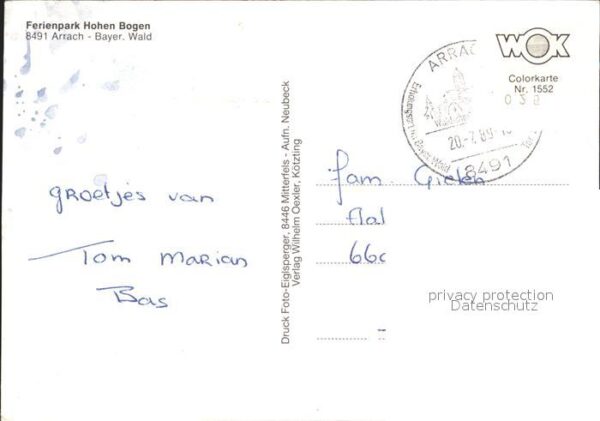 Ferienpark Hohen Bogen
8491 Arrach - Bayer. Wald
WOK
Colorkarte
Nr. 1552
ARRAC
20.-7.89-1
8491
Druck Foto-Eiglsperger, 8446 Mitterfels - Aufn. Neubeck
Verlag Wilhelm Oexler, Kötzting
groetjes van
Tom Marian
Bas
fam. Gielen
66c
privacy protection
Datenschutz